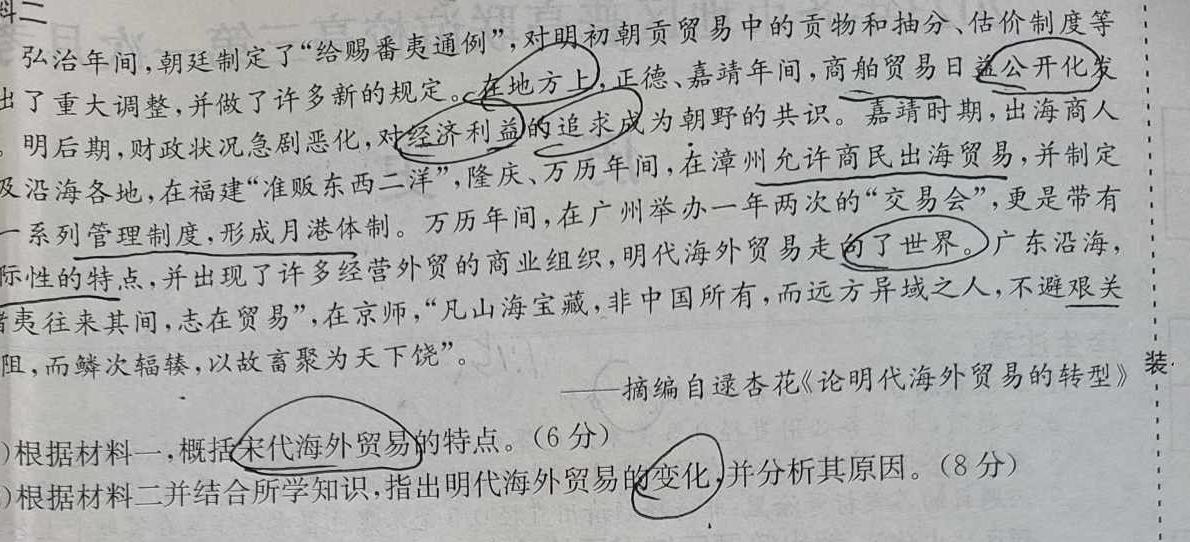 料二
弘治年间,朝廷制定了“给赐番夷通例”,对明初朝贡贸易中的贡物和抽分、估价制度等
出了重大调整,并做了许多新的规定。在地方上,正德、嘉靖年间,商舶贸易日益公开化发
。明后期,财政状况急剧恶化,对经济利益的追求成为朝野的共识。嘉靖时期,出海商人
及沿海各地,在福建“准贩东西二洋”,隆庆、万历年间,在漳州允许商民出海贸易,并制定
一系列管理制度,形成月港体制。万历年间,在广州举办一年两次的“交易会”,更是带有
际性的特点,并出现了许多经营外贸的商业组织,明代海外贸易走向了世界。广东沿海,
诸夷往来其间,志在贸易”,在京师,“凡山海宝藏,非中国所有,而远方异域之人,不避艰关
阻,而鳞次辐辏,以故畜聚为天下饶”。
——摘编自逯杏花《论明代海外贸易的转型》
)根据材料一,概括宋代海外贸易的特点。(6分)
)根据材料二并结合所学知识,指出明代海外贸易的变化,并分析其原因。(8分)
装